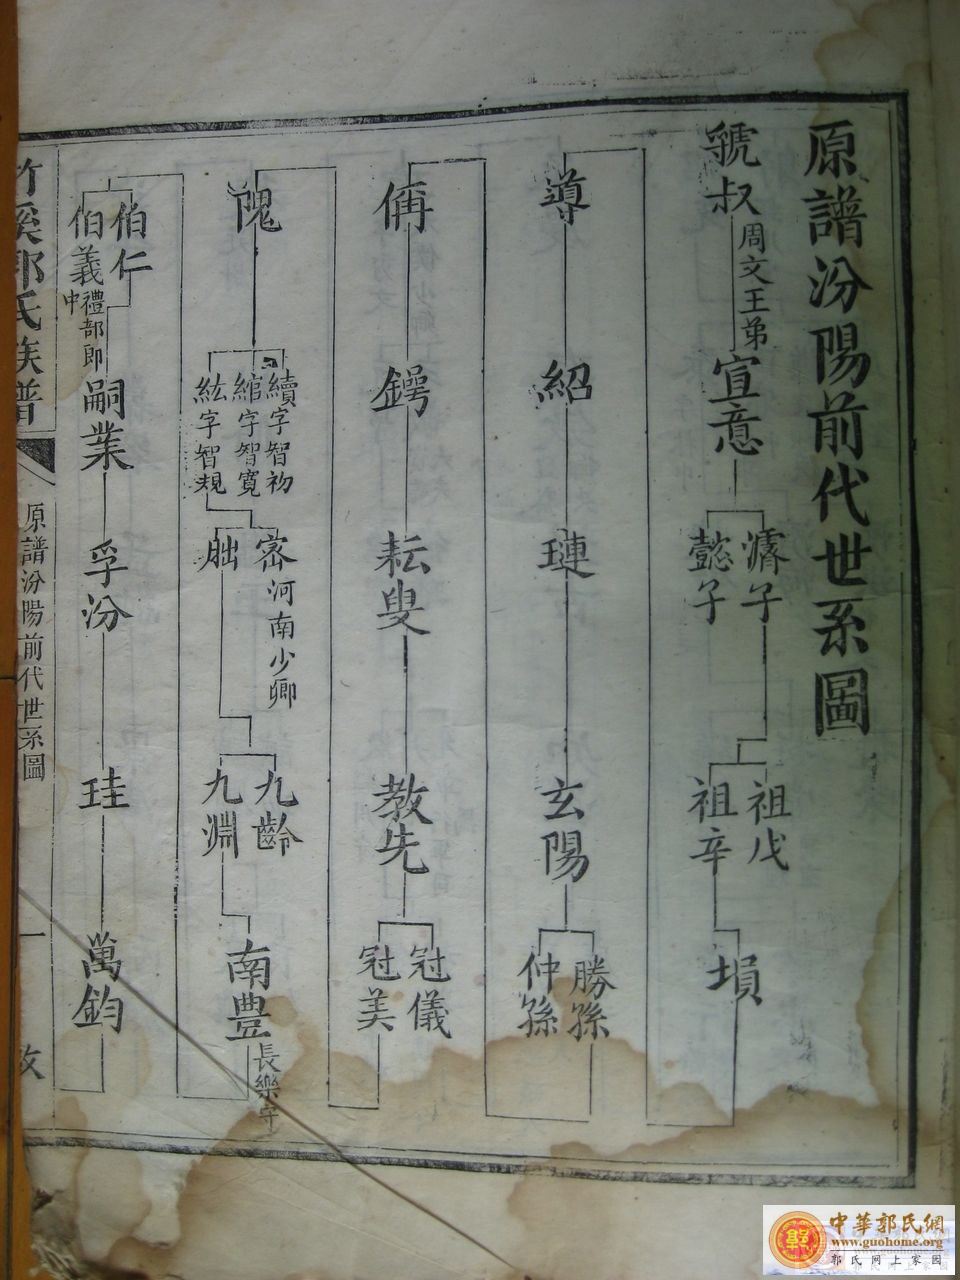 原譜汾陽前代世系圖
虢叔
周文王弟
宣意
濬子
懿子
祖戊
祖辛
塤
導
紹
璉
玄陽
勝孫
仲孫
偁
鍔
耘叟
教先
冠儀
冠美
隗
續字智初
綰字智寬
紘字智規
密河南少卿
朏
九齡
九淵
南豐
長樂
伯仁
伯義
禮部郎中
嗣業
孚汾
珪
萬鈞
竹溪郭氏族譜
原譜汾陽前代世系圖
一
中華郭氏網
www.guohome.org
郭氏网上家园